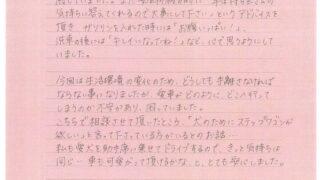 気持ちに答えてくれるので大事にして下さい」というアドバイスを
頂き、ガソリンを入れた時には「お腹いっぱい!」
洗車の後には「キレイになったね!」など、口で思うようにして
いました。
今回は生活環境の変化のため、どうしても手離さなければ
ならない事になりましたが、愛車がどのように、どこへ行って
しまうのか不安があり、困っていました。
こちらで相談させて頂いたところ、「犬のためにステップワゴンが
欲しい」と言って下さっている方がいるとのお話…
私も愛犬を助手席に乗せてドライブするので、きっと気持ちは
同じ…車も可愛がって頂けるかな、と、とても安心しました。